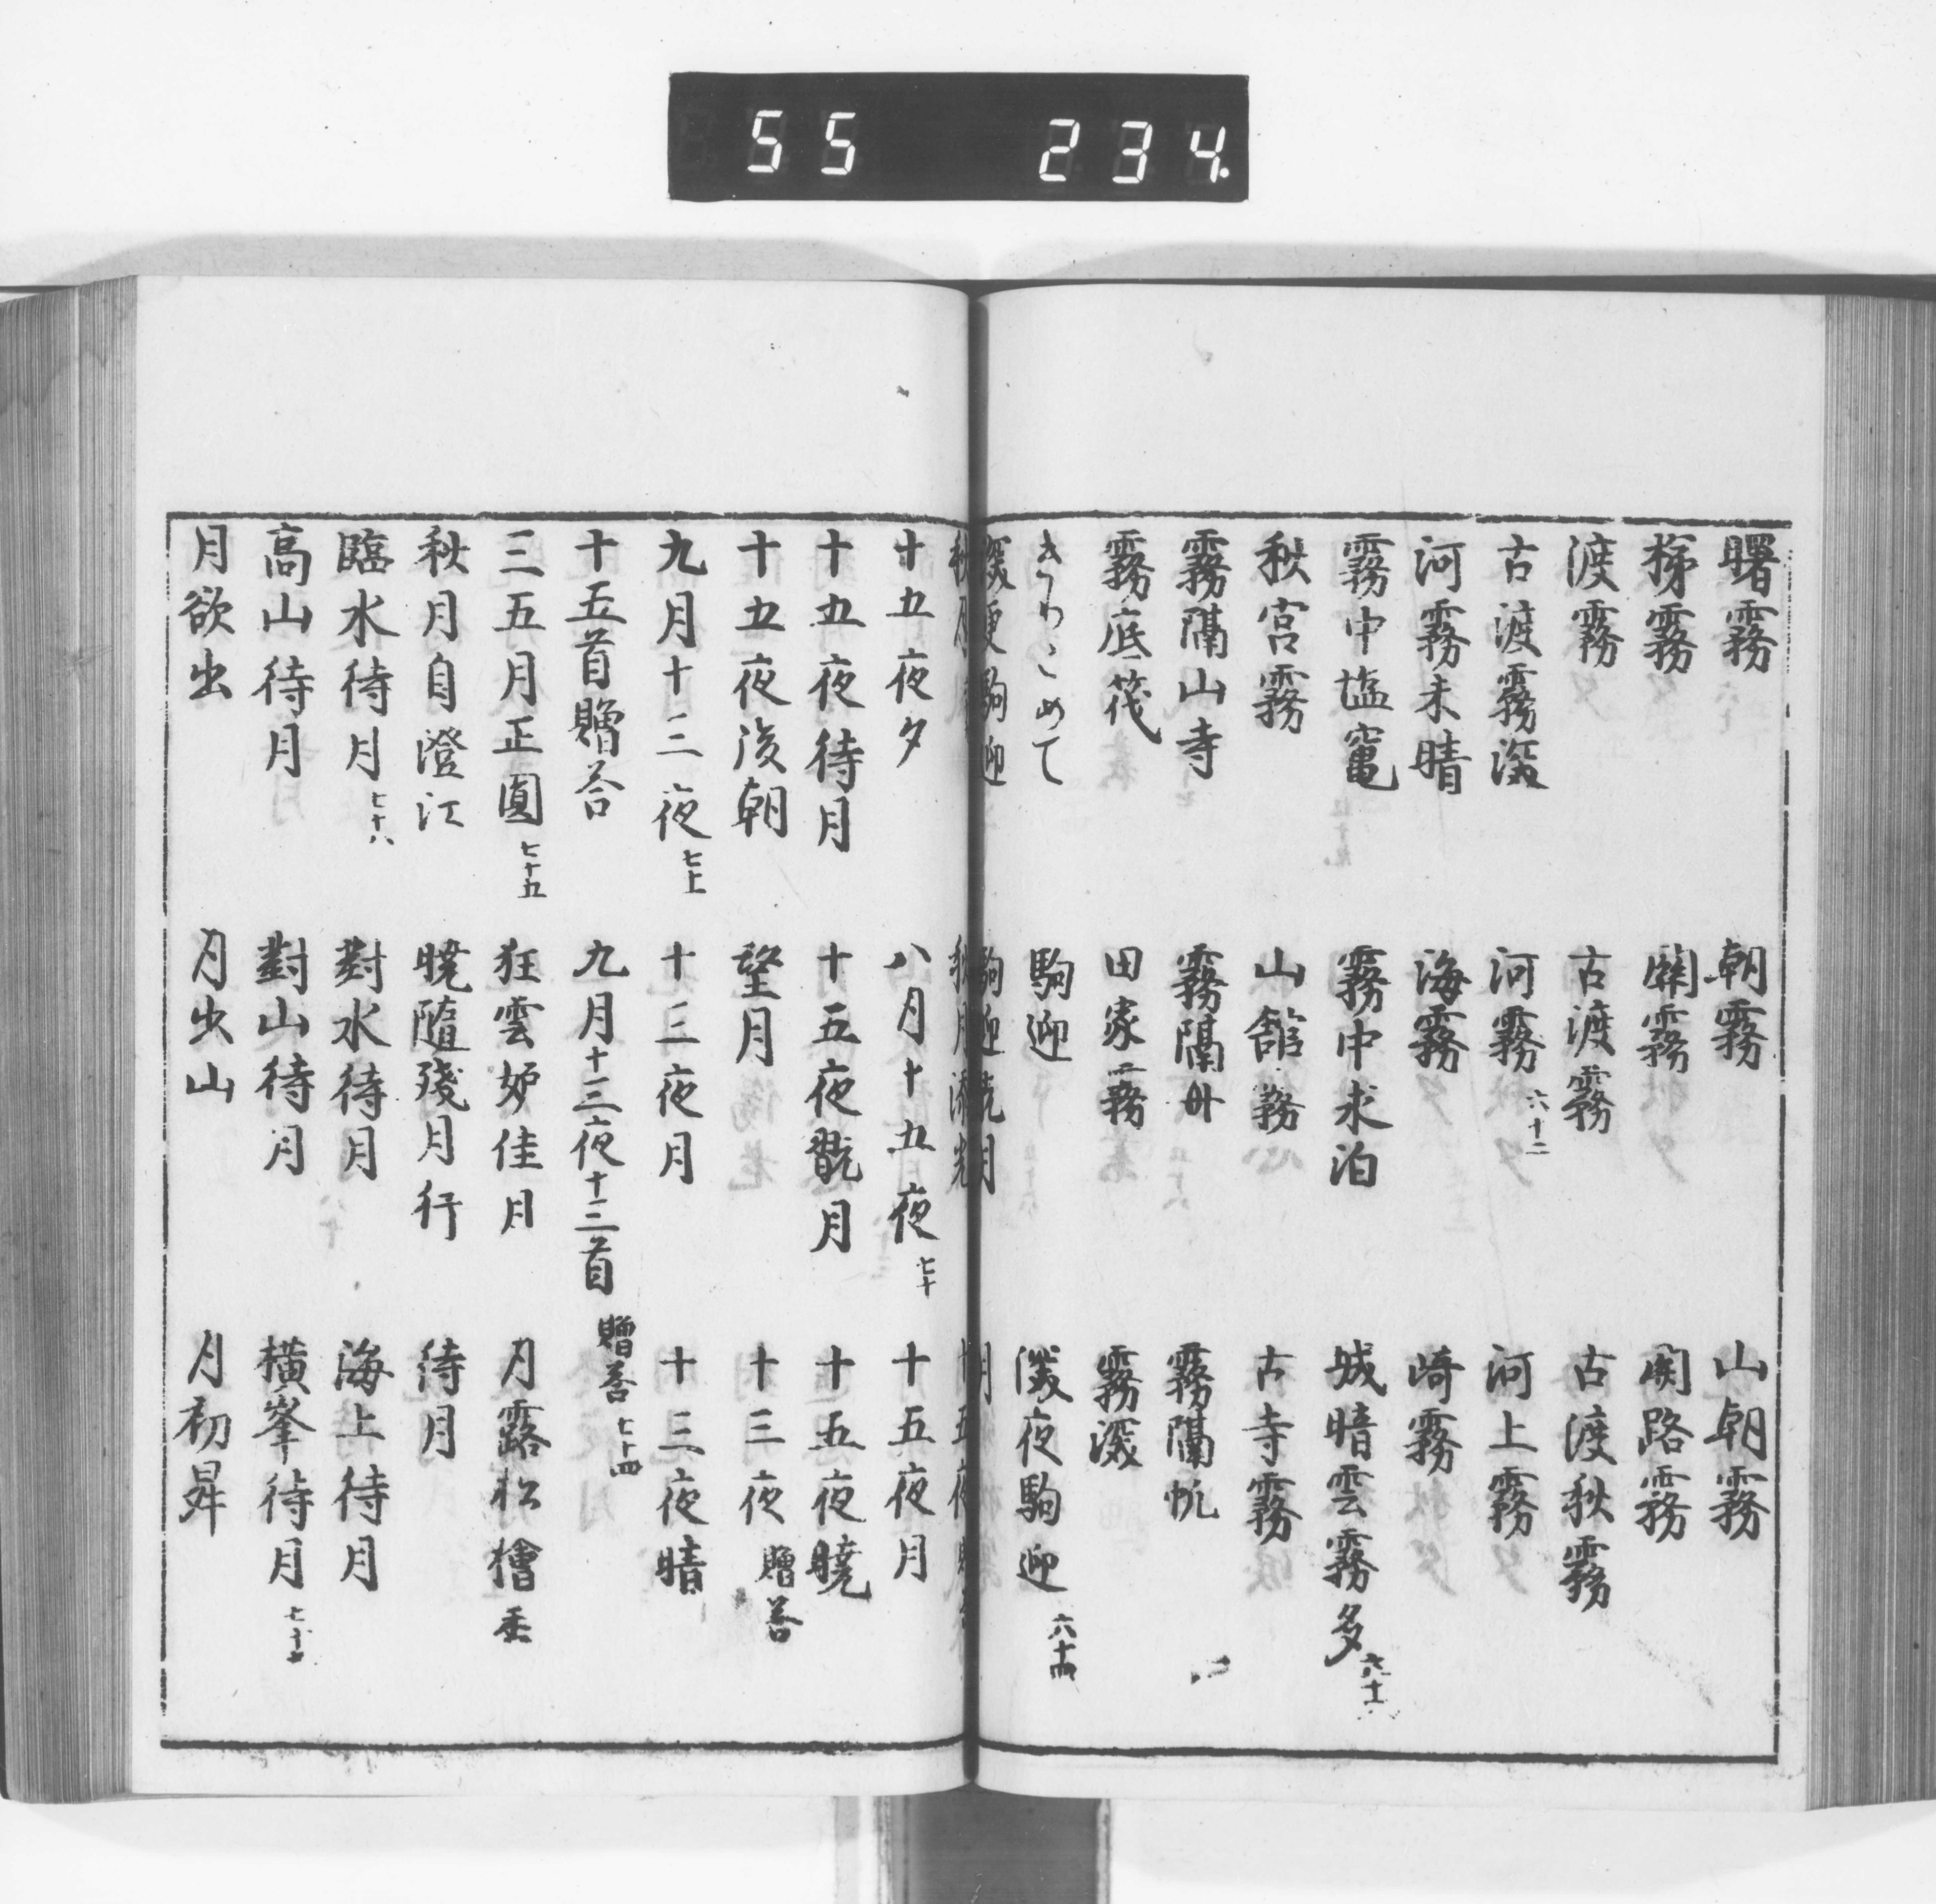 55 234.
曙霧 朝霧 山朝霧
梯霧 關霧 関路霧
渡霧 古渡霧 古渡秋霧
古渡霧深 河霧 六十二 河上霧
河霧未晴 海霧 崎霧
霧中塩竃 霧中求泊 城暗雲霧多
秋宮霧 山舘霧 古寺霧
霧隔山寺 霧隔舟 霧隔帆
霧底筏 田家霧 霧深
きりこめて 駒迎 深夜駒迎 六十四
深更駒迎 駒迎
秋月 秋月添光 十五夜
十五夜夕 八月十五夜 七十 十五夜月
十五夜待月 十五夜翫月 十五夜曉
十五夜後朝 望月 十三夜 贈荅
九月十三夜 十三夜月 十三夜晴
十五首贈荅 九月十三夜十三首 贈荅 七十四
三五月正圓 七十五 狂雲妒佳月 月露松檜垂
秋月自澄江 曉隨殘月行 待月
臨水待月 七十六 對水待月 海上待月
高山待月 對山待月 横峯待月 七十七
月欲出 月出山 月初昇